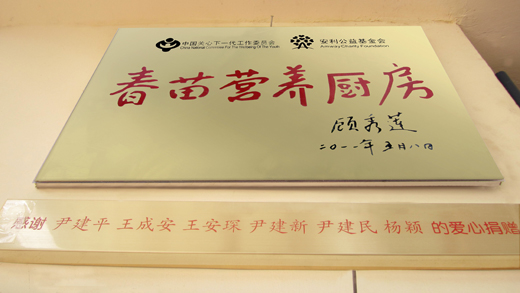 中国关心下一代工作委员会 安利公益基金会
China National Committee For The Wellbeing Of The Youth Amway Charity Foundation
春苗营养厨房
顾秀莲
二〇一一年五月八日
感谢 尹建平 王成安 王安琛 尹建新 尹建民 杨颖 的爱心捐赠